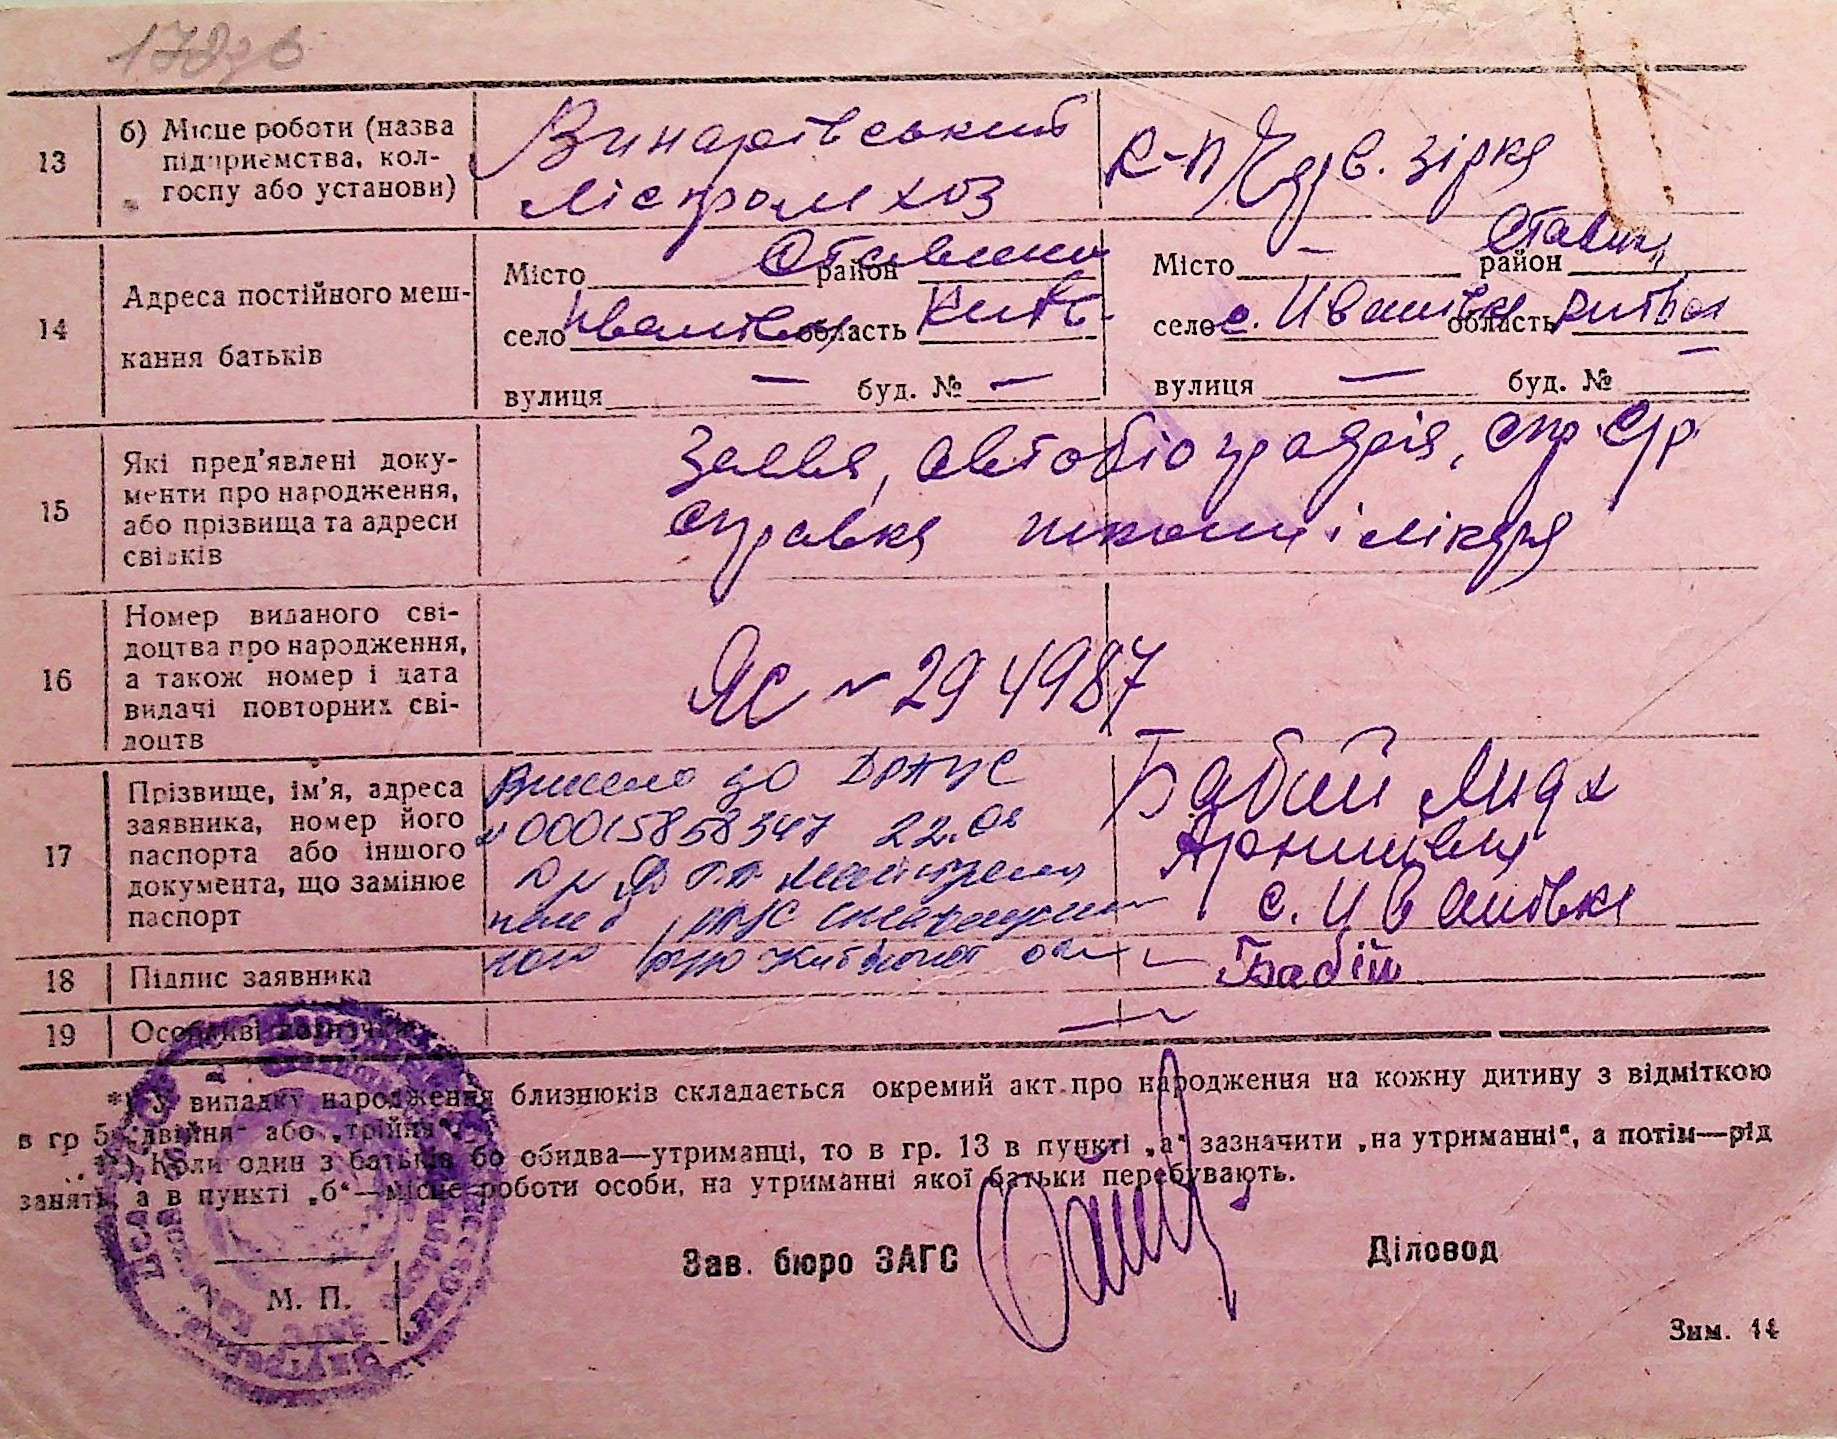 13 б) Місце роботи (назва підприємства, колгоспу або установи)
Винарівський
ліспромхоз
к-п Черв. зірка
14 Адреса постійного мешкання батьків
Місто район Ставищ
село Іванівка область Київ.
вулиця — буд. № —
Місто — район Ставищ
село с. Иванівка область Київськ
вулиця — буд. № —
15 Які пред'явлені документи про народження, або прізвища та адреси свідків
Заява, автобіографія, спр. с/р
справка школи і лікаря
16 Номер виданого свідоцтва про народження, а також номер і дата видачі повторних свідоцтв
ЯС № 294987
17 Прізвище, ім'я, адреса заявника, номер його паспорта або іншого документа, що замінює паспорт
Внесено до ДРАЦС
№ 00015858347 22.08
Бабій
с. Иванівка
18 Підпис заявника
Бабій
19 Особливі
*) У випадку народження близнюків складається окремий акт про народження на кожну дитину з відміткою
в гр 5 „двійня" або „трійня".
Коли один з батьків бо обидва—утриманці, то в гр. 13 в пункті „а" зазначити „на утриманні", а потім—рід
занять, а в пункті „б"—місце роботи особи, на утриманні якої батьки перебувають.
Зав. бюро ЗАГС
Діловод
М. П.
Зим. 14